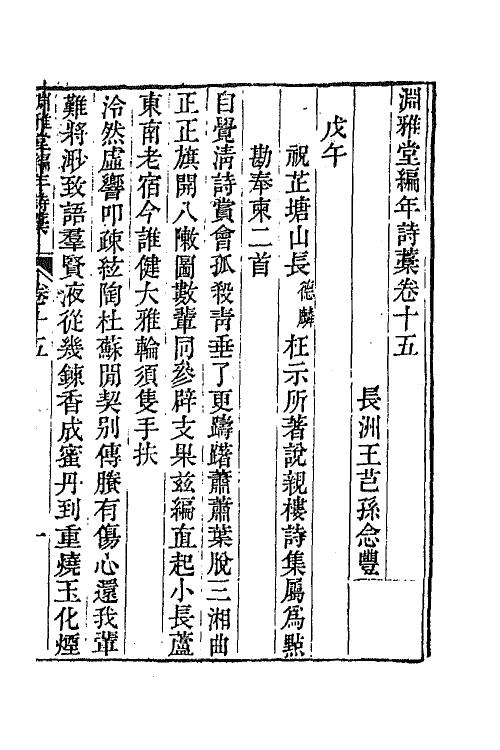 淵雅堂編年詩藁卷十五
長洲王芑孫念豐
戊午
祝芷塘山長德麟枉示所著說親樓詩集屬爲㸃
勘奉柬二首
自覺淸詩賞會孤殺靑垂了更躊躇蕭蕭葉脫三湘曲
正正旗開八𨻰圖數輩同參辟支果兹編直起小長蘆
東南老宿今誰健大雅輪須隻手扶
泠然虛響叩疎絃陶杜蘇閒契别傳賸有傷心還我輩
難將渺致語羣賢液從幾鍊香成蜜丹到重燒玉化煙
淵雅堂編年詩藁 卷十五 一